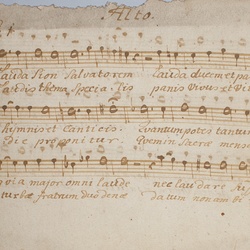 Alto.
Lauda Sion Salvatorem Lauda ducem et pa
Laudis thema specia lis panis vivus et vit
hymnis et Canticis. Quantum potes tantum
die proponitur. Quem in Sacrae mensae
quia major omni laude nec laudare su
turbae fratrum duodenae datum non am bi